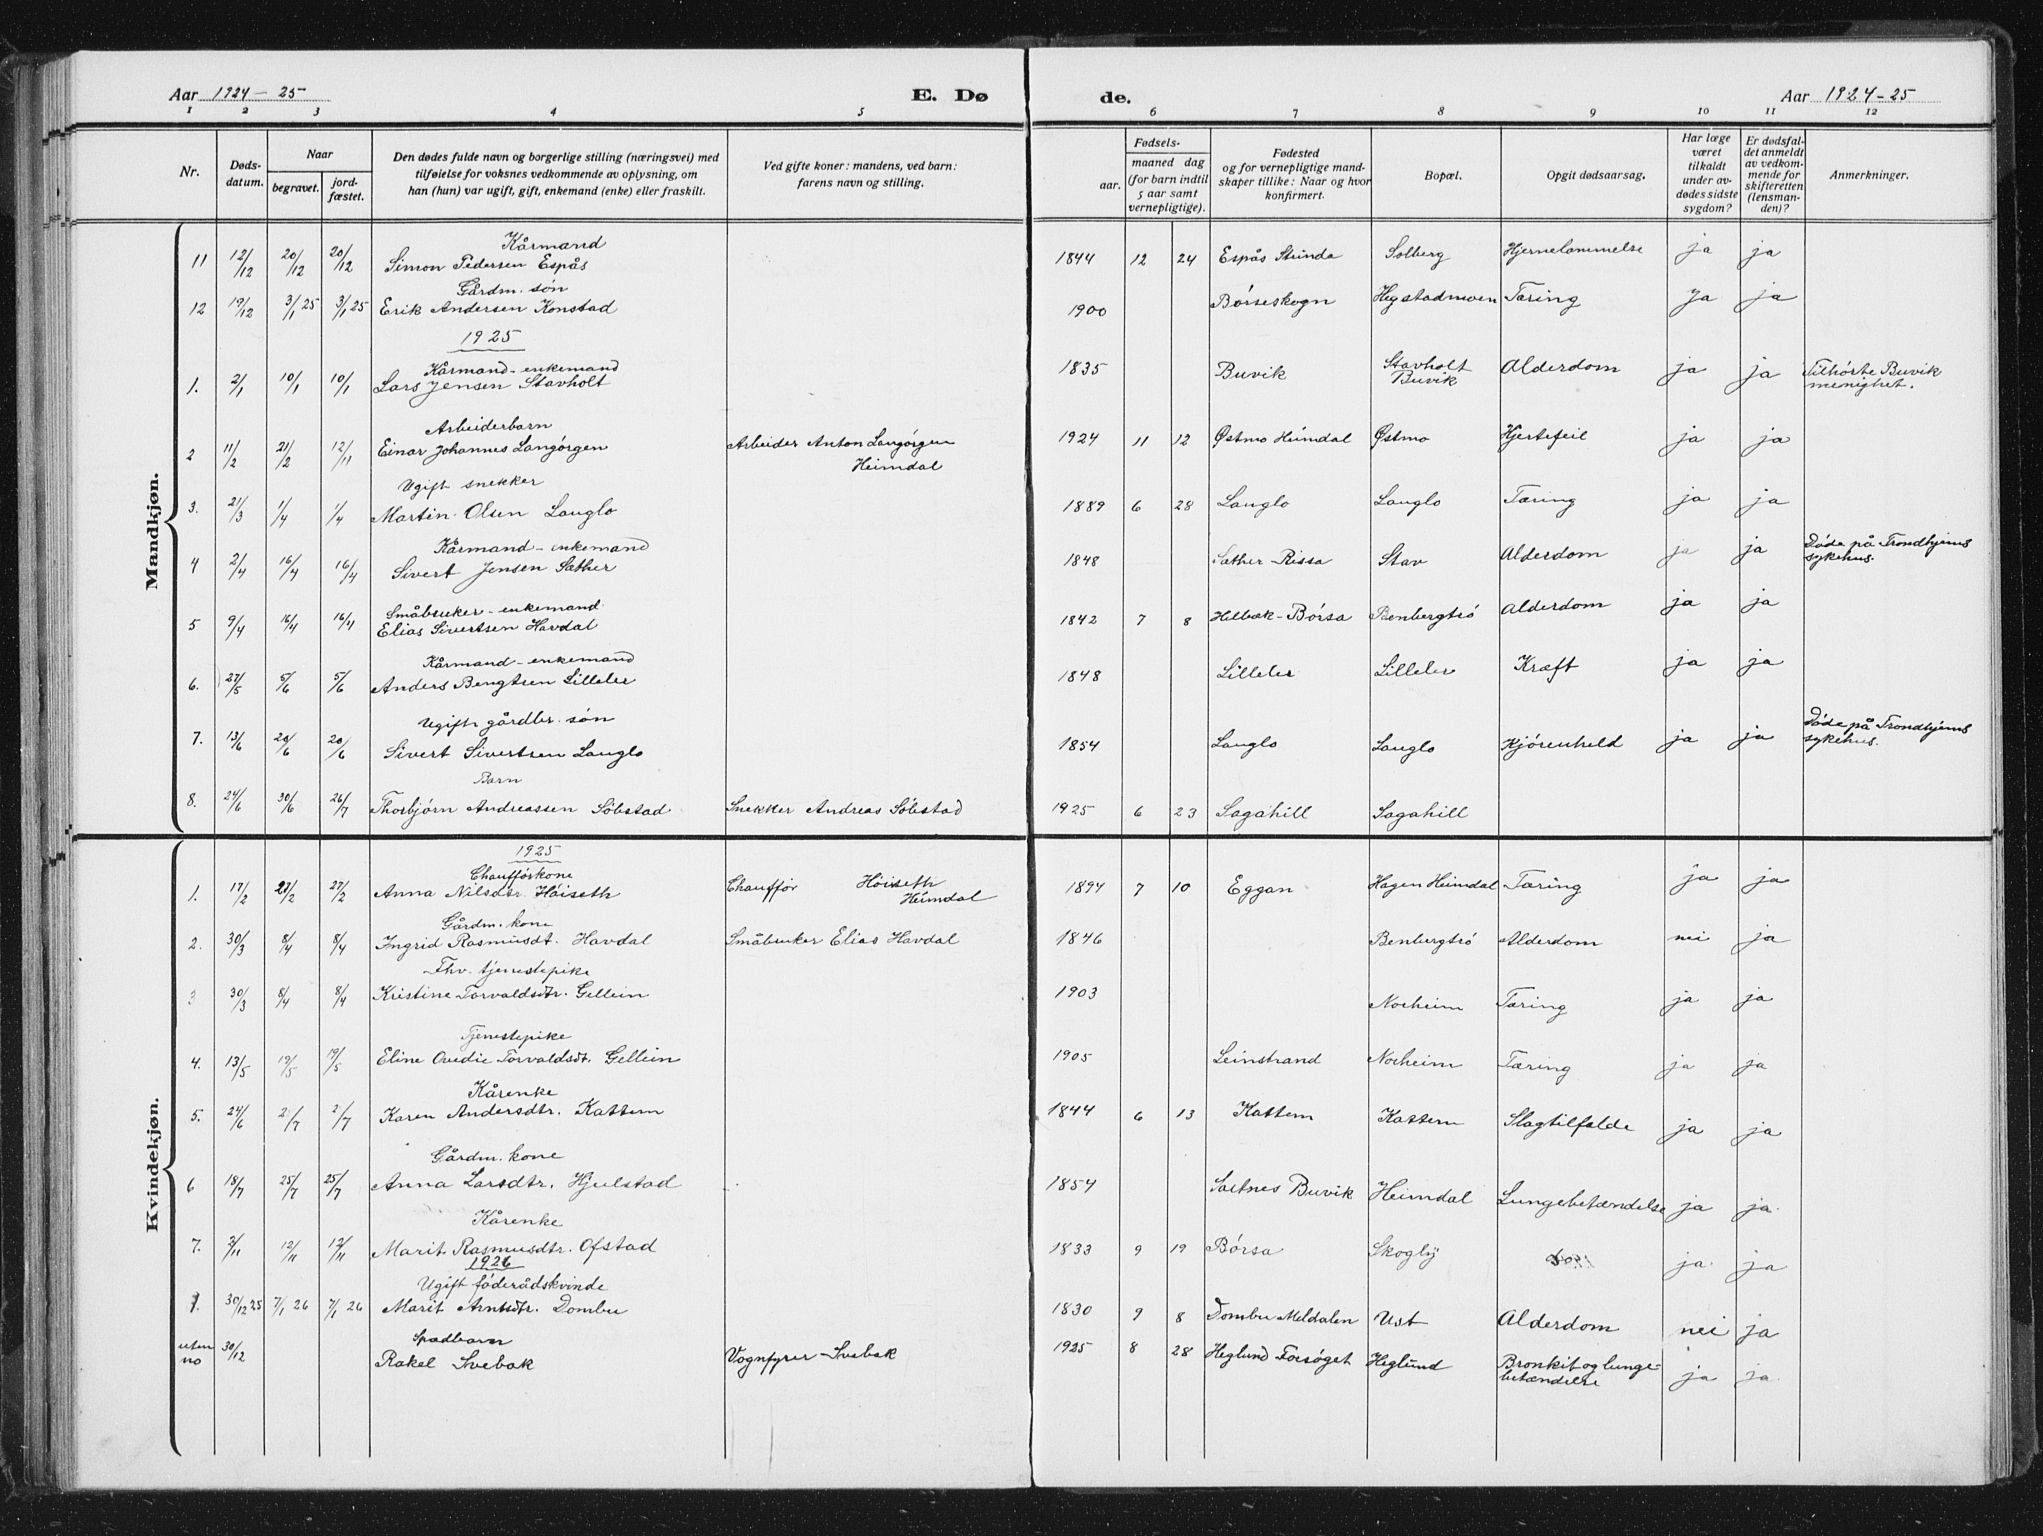 Aar 1924 - 25 E. Dø de. Aar 1924 - 25
1 2 3 4 5 6 7 8 9 10 11 12
Nr. Dødsdatum. Naar begravet. jordfæstet.
Den dødes fulde navn og borgerlige stilling (næringsvei) med
tilføielse for voksnes vedkommende av oplysning, om
han (hun) var ugift, gift, enkemand (enke) eller fraskilt.
Ved gifte koner: mandens, ved barn:
farens navn og stilling.
Fødsels-
aar. maaned dag
(for barn indtil
5 aar samt
vernepligtige).
Fødested
og for vernepligtige mand-
skaper tillike: Naar og hvor
konfirmert.
Bopæl.
Opgit dødsaarsag.
Har læge
været
tilkaldt
under av-
dødes sidste
sygdom?
Er dødsfal-
det anmeldt
av vedkom-
mende for
skifteretten
(lensman-
den)?
Anmerkninger.
Mandkjøn.
Kårmand
11 12/12 20/12 20/12 Simon Pedersen Espås 1844 12 24 Espås Stinda Solberg Hjernelammelse ja ja
Gårdm. søn
12 19/12 3/1 25 3/1 25 Erik Andersen Konstad 1900 Børseskogn Hegstadmoen Tæring ja ja
1925
Kårmand - enkemand
1. 2/1 10/1 10/1 Lars Jensen Stavholt 1835 Buvik Stavholt Buvik Alderdom ja ja Tilhørte Buvik menighet.
Arbeiderbarn
2 11/2 21/2 12/11 Einar Johannes Langørgen Arbeider Anton Langørgen Heimdal 1924 11 12 Østmo Heimdal Østmo Hjertefeil ja ja
Ugift snekker
3. 21/3 1/4 1/4 Martin Olsen Langlo 1889 6 28 Langlo Langlo Tæring ja ja
Kårmand - enkemand
4 2/4 16/4 16/4 Sivert Jensen Sæther 1848 Sæther - Rissa Stav Alderdom ja ja Døde på Trondhjems sykehus.
Småbruker - enkemand
5 9/4 16/4 16/4 Elias Sivertsen Havdal 1842 7 8 Hilbæk - Børsa Benbergtrø Alderdom ja ja
Kårmand - enkemand
6. 27/5 5/6 5/6 Anders Bengtsen Lilleler 1848 Lilleler Lilleler Kræft ja ja
Ugift gårdbr. søn
7. 13/6 20/6 20/6 Sivert Sivertsen Langlo 1854 Langlo Langlo Kjøreuheld ja ja Døde på Trondhjems sykehus.
Barn
8. 24/6 30/6 26/7 Thorbjørn Andreassen Søbstad Snekker Andreas Søbstad 1925 6 23 Sagahill Sagahill
Kvindekjøn.
1925
Chaufførkone
1. 17/2 27/2 27/2 Anna Nilsdtr. Høiseth Chauffør Høiseth Heimdal 1894 7 10 Eggan Hagen Heimdal Tæring ja ja
Gårdm. kone
2. 30/3 8/4 8/4 Ingrid Rasmusdt. Havdal Småbruker Elias Havdal 1846 Benbergtrø Alderdom nei ja
Fhv. tjenestepike
3 30/3 8/4 8/4 Kristine Torvaldsdtr. Gellein 1903 Norheim Tæring ja ja
Tjenestepike
4. 13/5 19/5 19/5 Eline Ovedie Torvaldsdt. Gellein 1905 Leinstrand Norheim Tæring ja ja
Kårenke
5. 24/6 2/7 2/7 Karen Andersdtr. Kattem 1844 6 13 Kattem Kattem Slagtilfælde ja ja
Gårdm. kone
6 18/7 25/7 25/7 Anna Larsdtr. Hjulstad 1854 Saltnes Buvik Heimdal Lungebetændelse ja ja.
Kårenke
7. 2/11 12/11 12/11 Marit Rasmusdtr. Ofstad 1833 9 19 Børsa Skogly ja. ja
1926
Ugift føderådskvinde
1. 30/12 25 7/1 26 7/1 26 Marit Arntsdtr. Dombu 1830 9 8 Dombu Meldalen Ust Alderdom nei ja
Spædbarn
uten no 30/12 Rakel Svebak Vognfyrer Svebak 1925 8 28 Heglund Forsøget Heglund Bronkit og lunge-
betændelse ja ja.